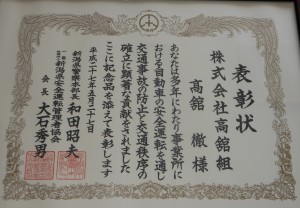 表彰状
株式会社高舘組
高舘 徹 様
あなたは多年にわたり事業所に
おける自動車の安全運転を通し
交通事故の防止と交通秩序の
確立に顕著な貢献をされました
ここに記念品を添えて表彰します
平成二十七年五月二十七日
新潟県警察本部長 和田昭夫
一般社団法人 新潟県安全運転管理者協会
会長 大石秀男